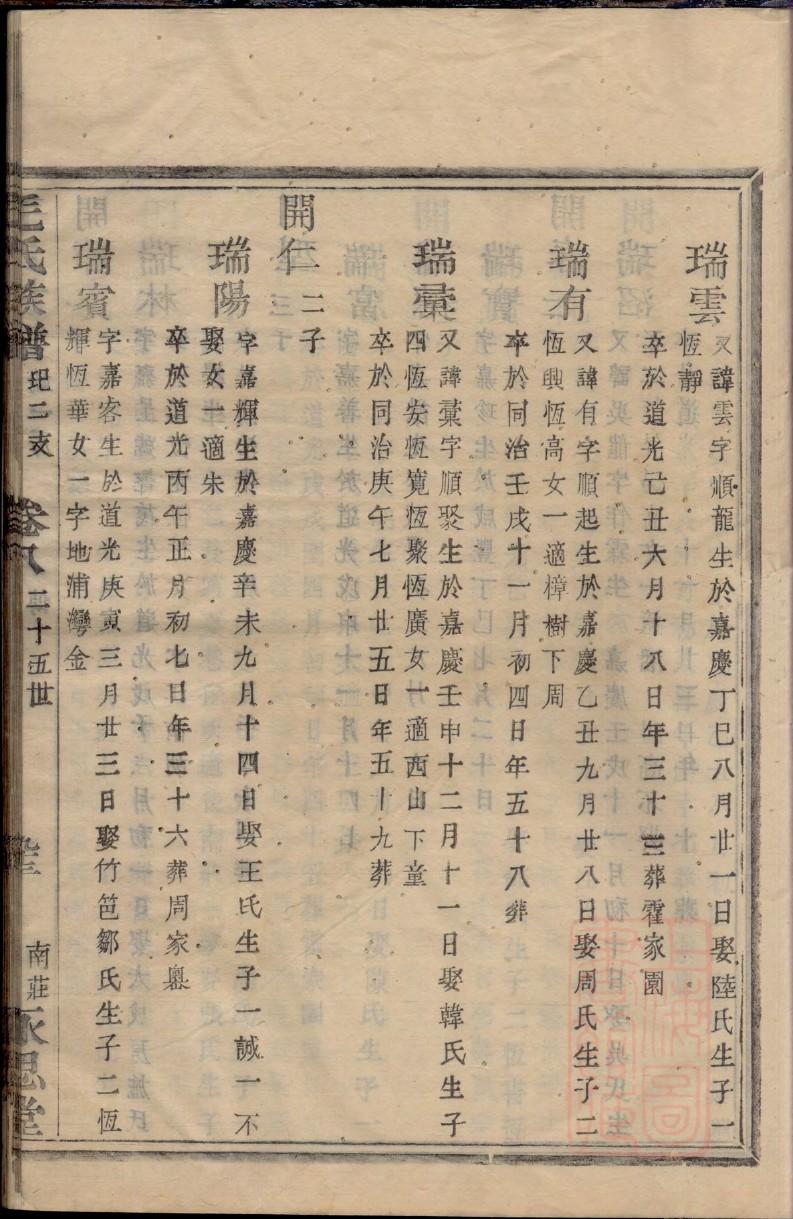 瑞雲
又諱雲字順龍生於嘉慶丁巳八月廿一日娶陸氏生子一
恆靜
卒於道光己丑六月十八日年三十三葬霍家園
瑞有
又諱有字順起生於嘉慶乙丑九月廿八日娶周氏生子二
恆興恆高女一適樟樹下周
卒於同治壬戌十一月初四日年五十八葬
瑞彙
又諱彙字順聚生於嘉慶壬申十二月十一日娶韓氏生子
四恆安恆寬恆聚恆廣女一適西山下童
卒於同治庚午七月廿五日年五十九葬
開仁二子
瑞陽
字嘉輝生於嘉慶辛未九月十四日娶王氏生子一誠一不
娶女一適朱
卒於道光丙午正月初七日年三十六葬周家嶴
瑞賓
字嘉客生於道光庚寅三月廿三日娶竹笆鄒氏生子二恆
輝恆華女一字地浦灣金
毛氏族譜 玘二支 卷八 二十五世 南莊永思堂